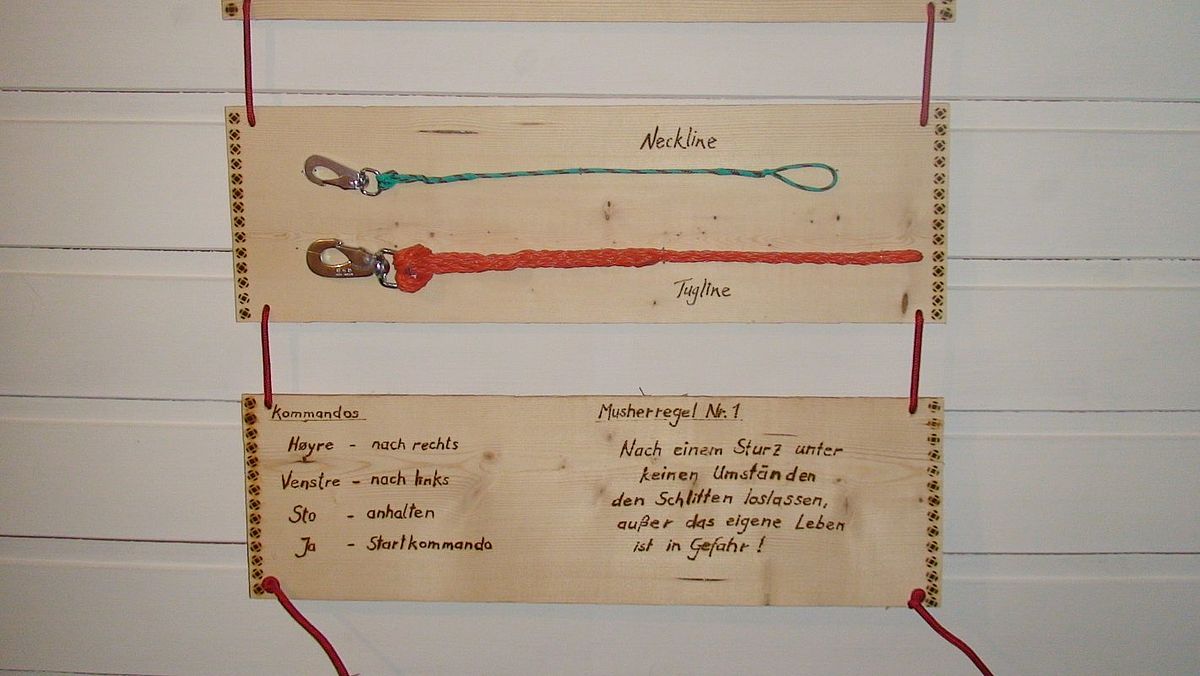 Neckline
Tugline
Kommandos
Høyre - nach rechts
Venstre - nach links
Sto - anhalten
Ja - Startkommando
Musherregel Nr. 1
Nach einem Sturz unter
keinen Umständen
den Schlitten loslassen,
außer das eigene Leben
ist in Gefahr!